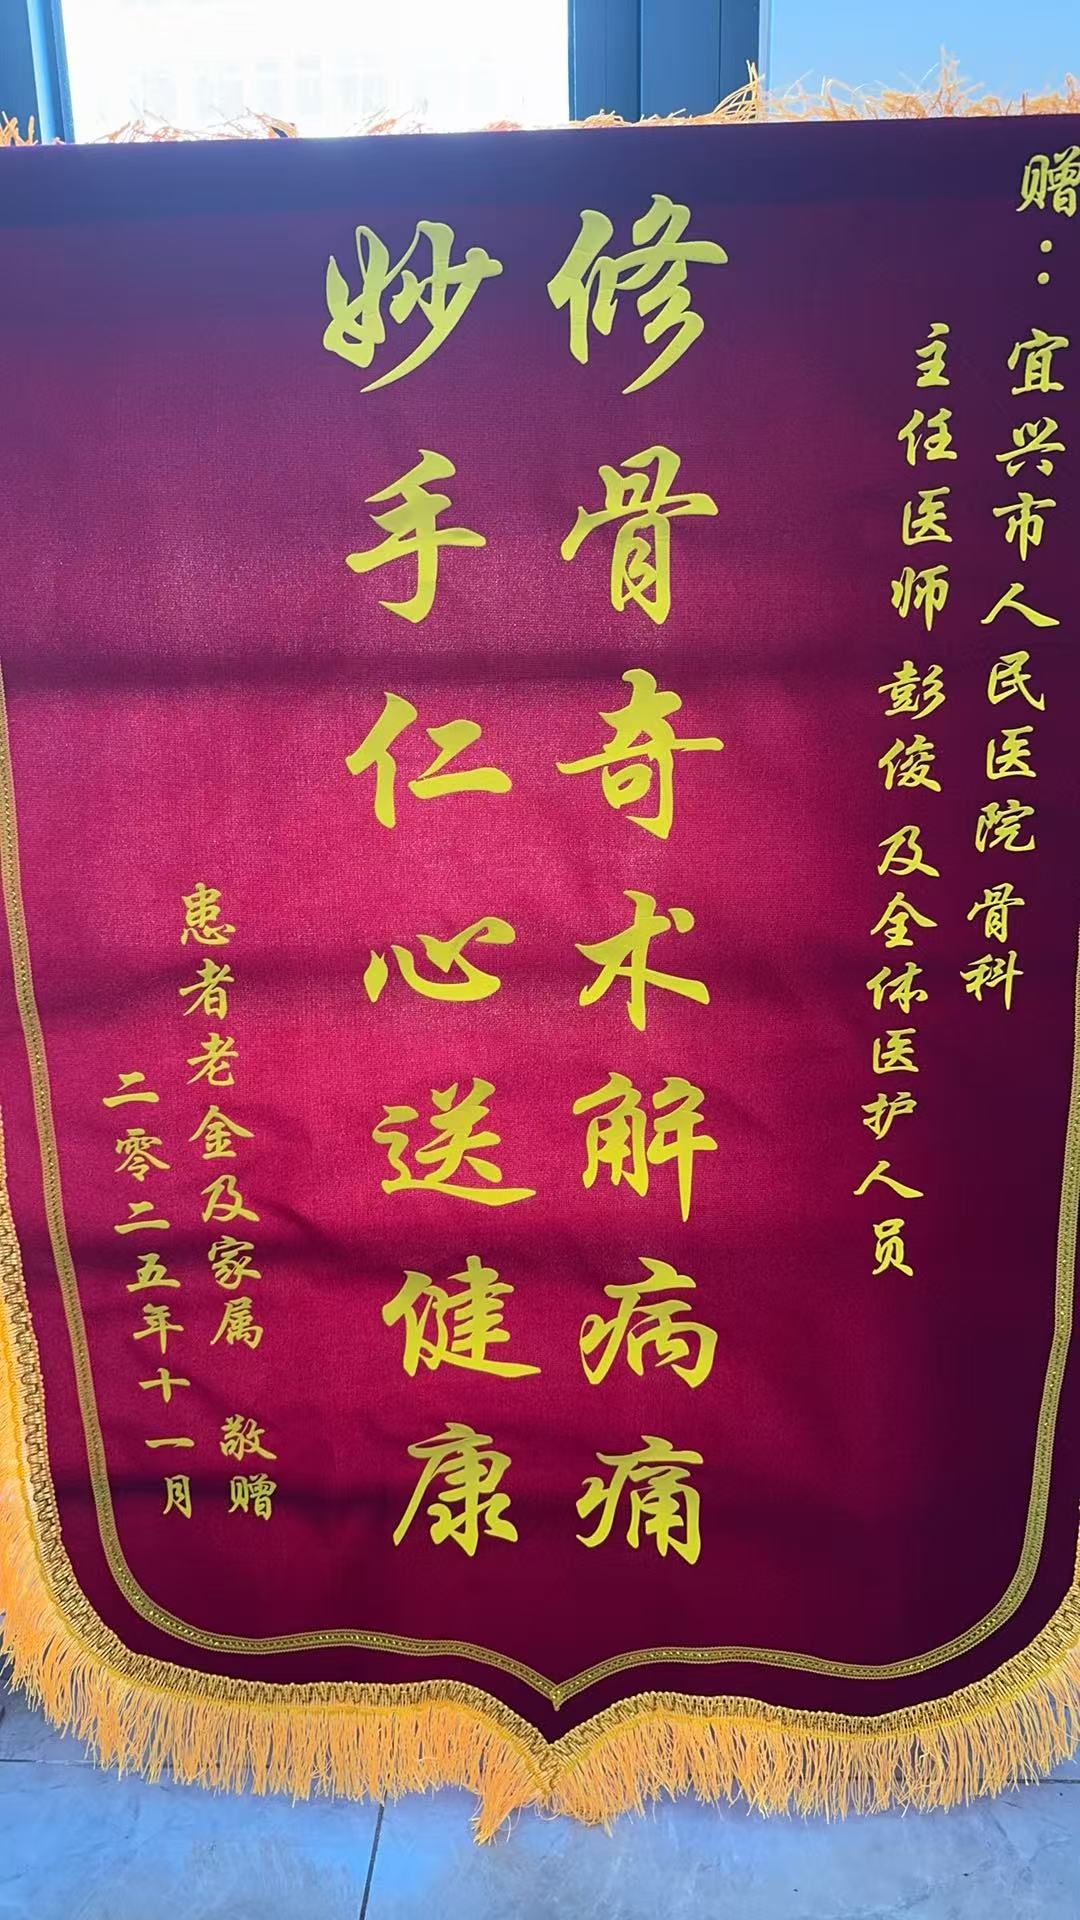 赠：宜兴市人民医院 骨科
主任医师 彭俊 及全体医护人员
修骨奇术解病痛
妙手仁心送健康
患者老金及家属 敬赠
二零二五年十一月